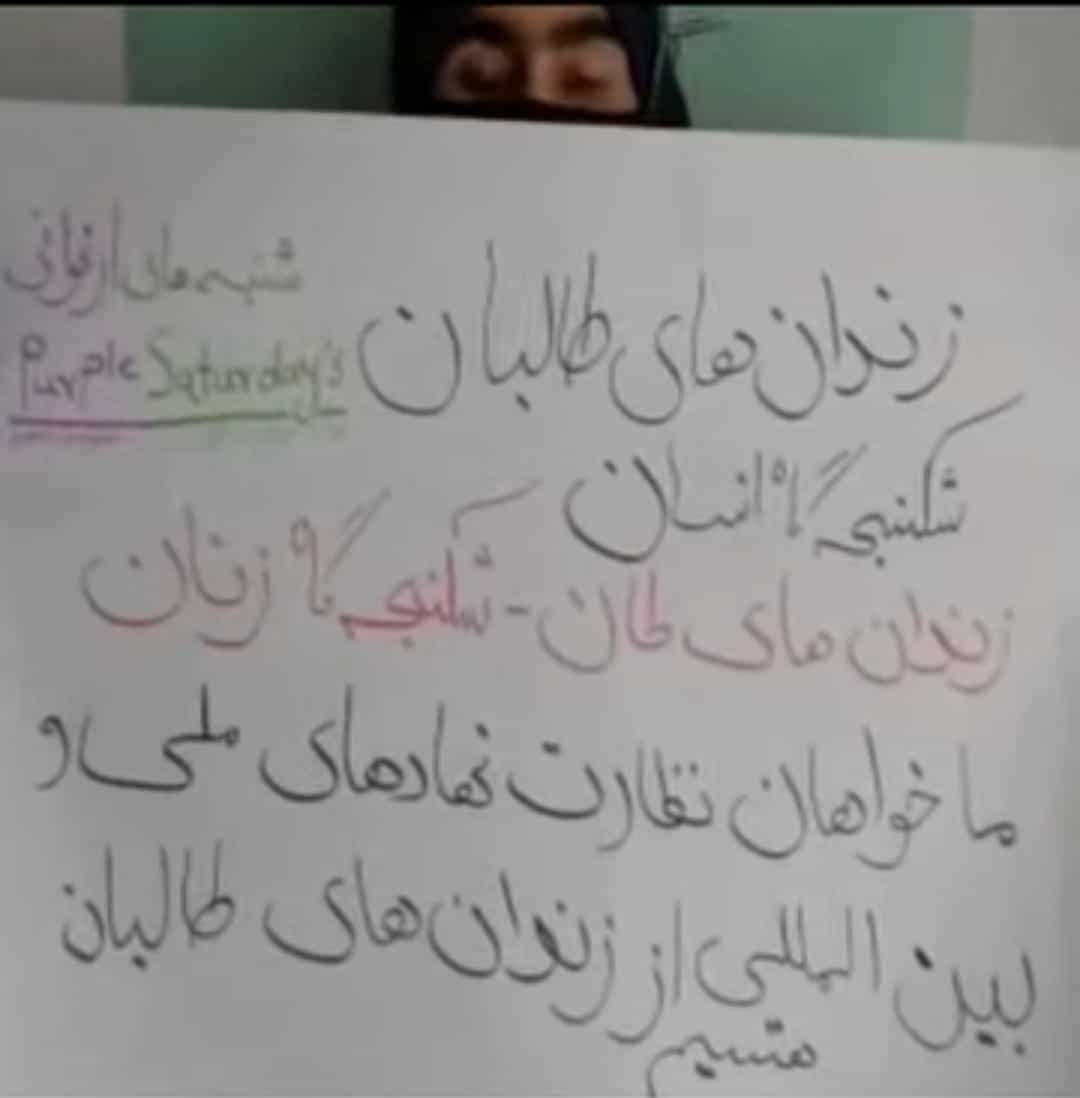 شنبه های ارغوانی
Purple Saturday's
زندان های طالبان
شکنجه گاه انسان
زندان های طالبان - شکنجه گاه زنان
ما خواهان نظارت نهادهای ملی و
بین المللی از زندان های طالبان
هستیم